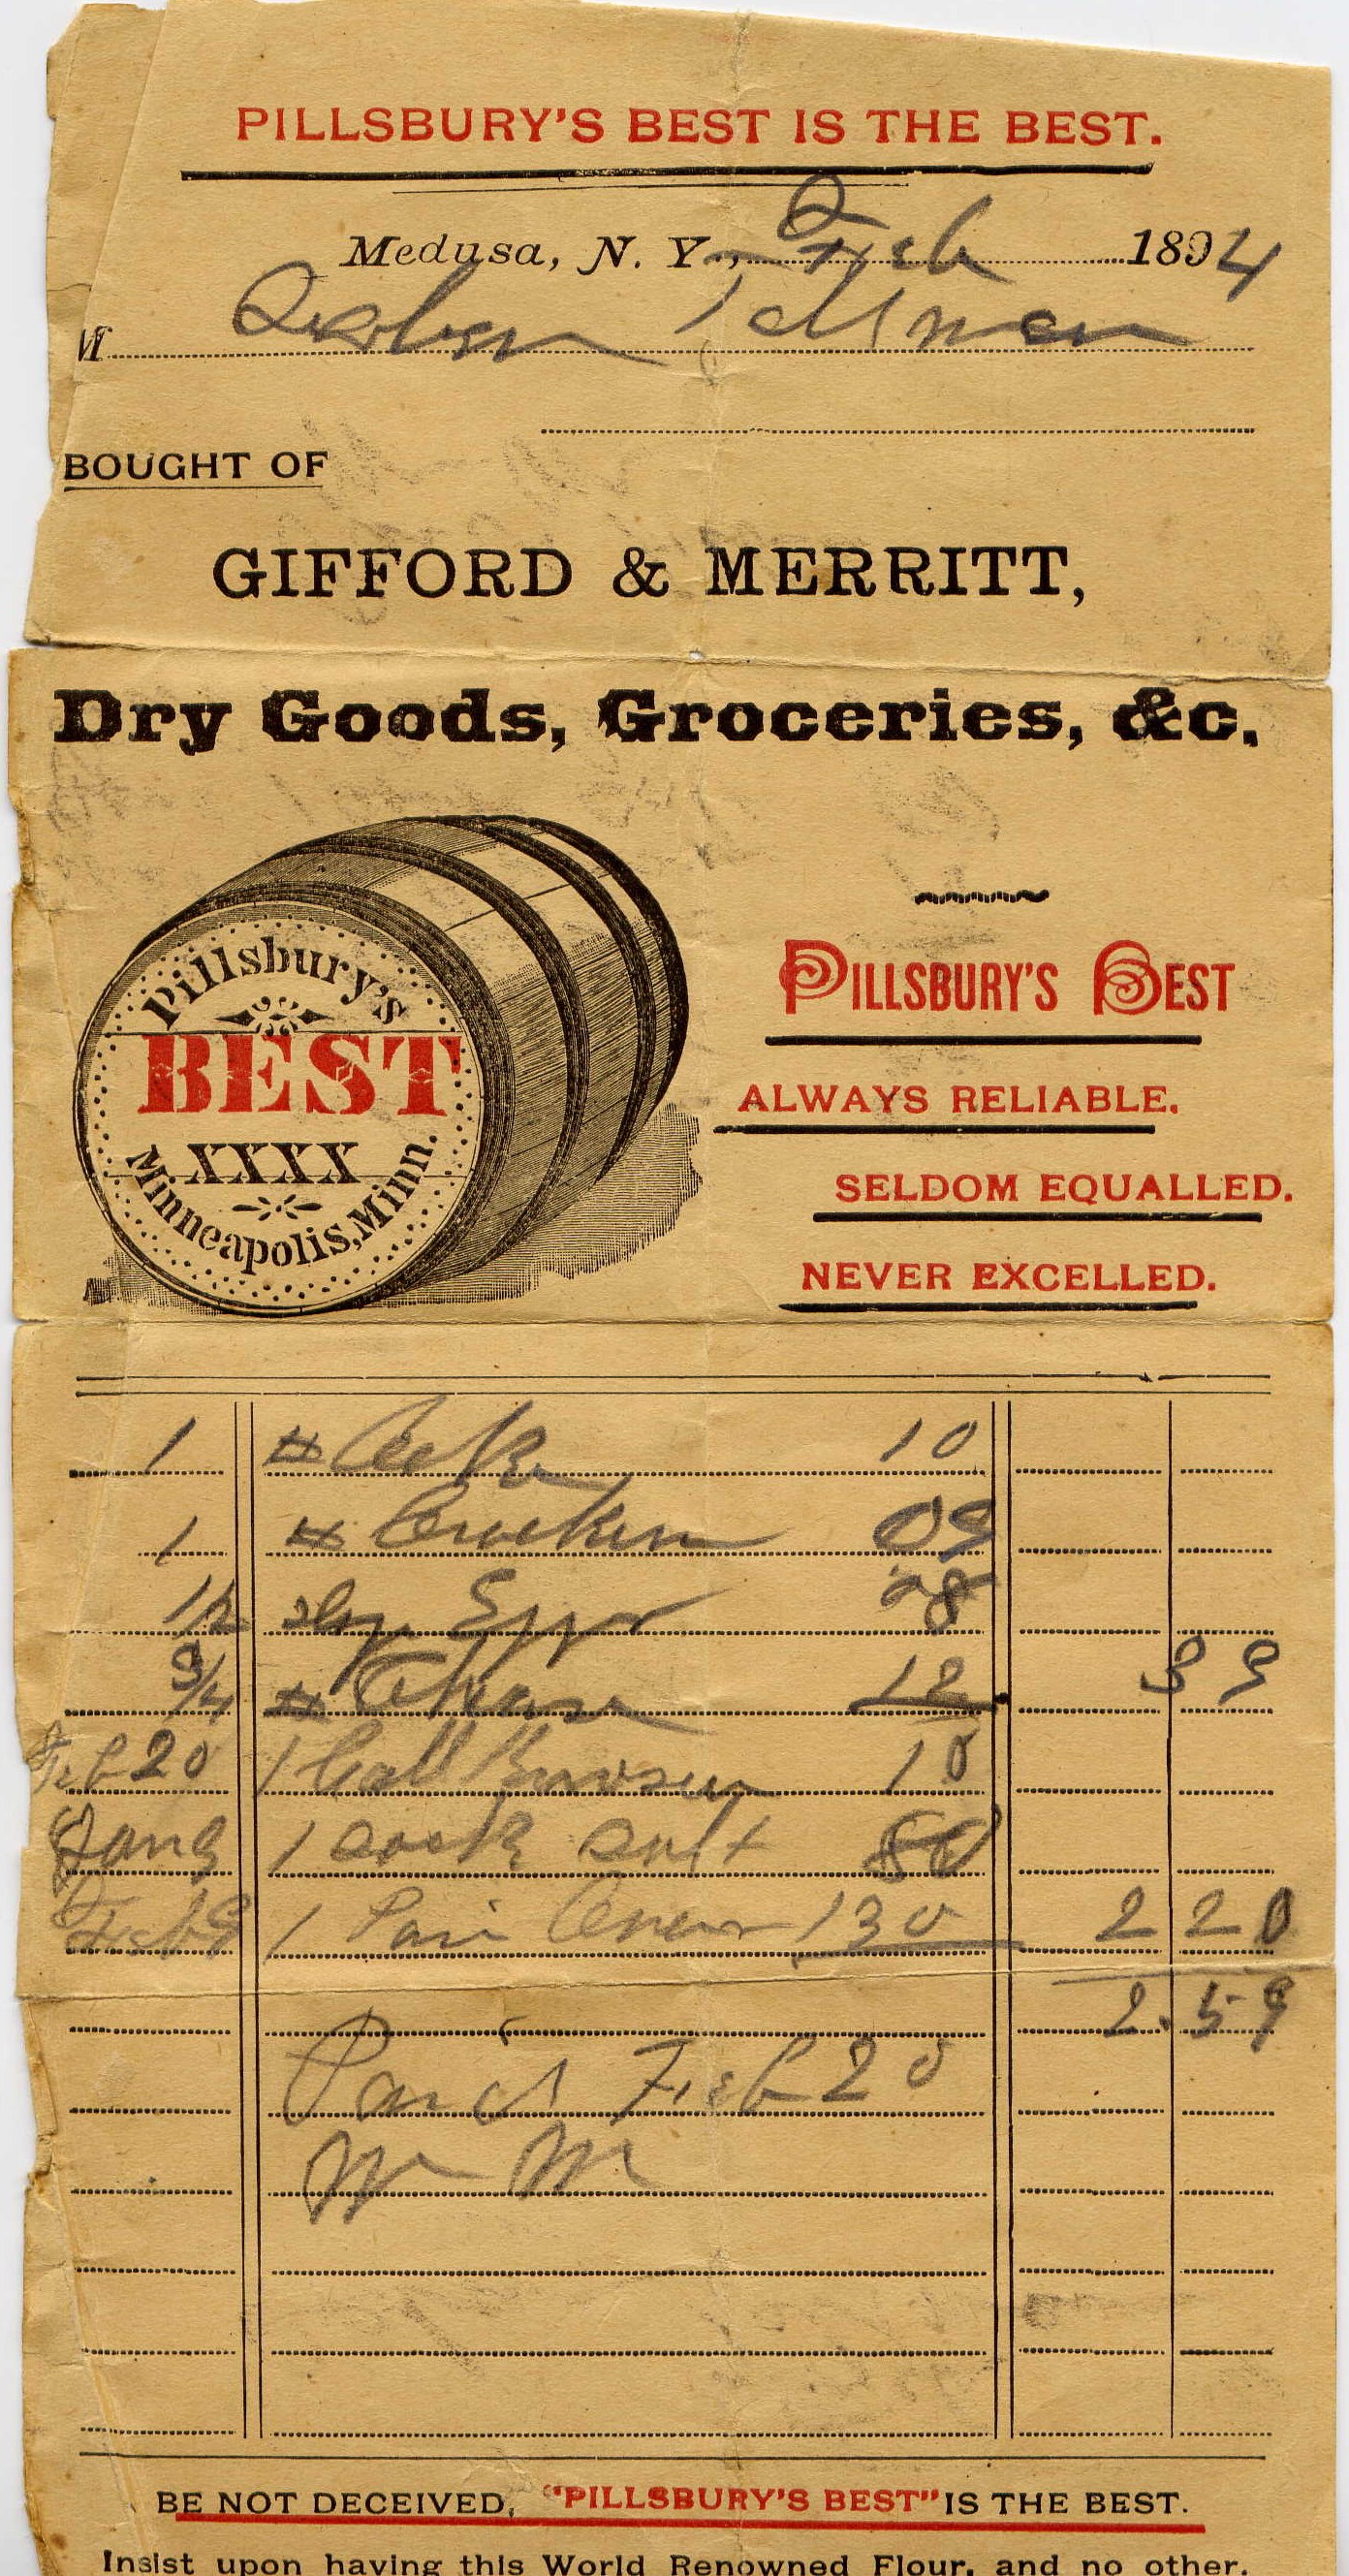 PILLSBURY'S BEST IS THE BEST.
Medusa, N. Y., Feb 1894
M Tallman
BOUGHT OF
GIFFORD & MERRITT,
Dry Goods, Groceries, &c.
Pillsbury's
BEST
XXXX
Minneapolis, Minn.
PILLSBURY'S BEST
ALWAYS RELIABLE.
SELDOM EQUALLED.
NEVER EXCELLED.
1 # 10
1 # Crackers 09
1/2 Eggs 08
3/4 # Cheese 12 39
Feb 20 1 Gall 10
1 sack salt 80
Feb 1 Pair 130 2 20
2.59
Paid Feb 20
BE NOT DECEIVED, "PILLSBURY'S BEST" IS THE BEST.
Insist upon having this World Renowned Flour, and no other.